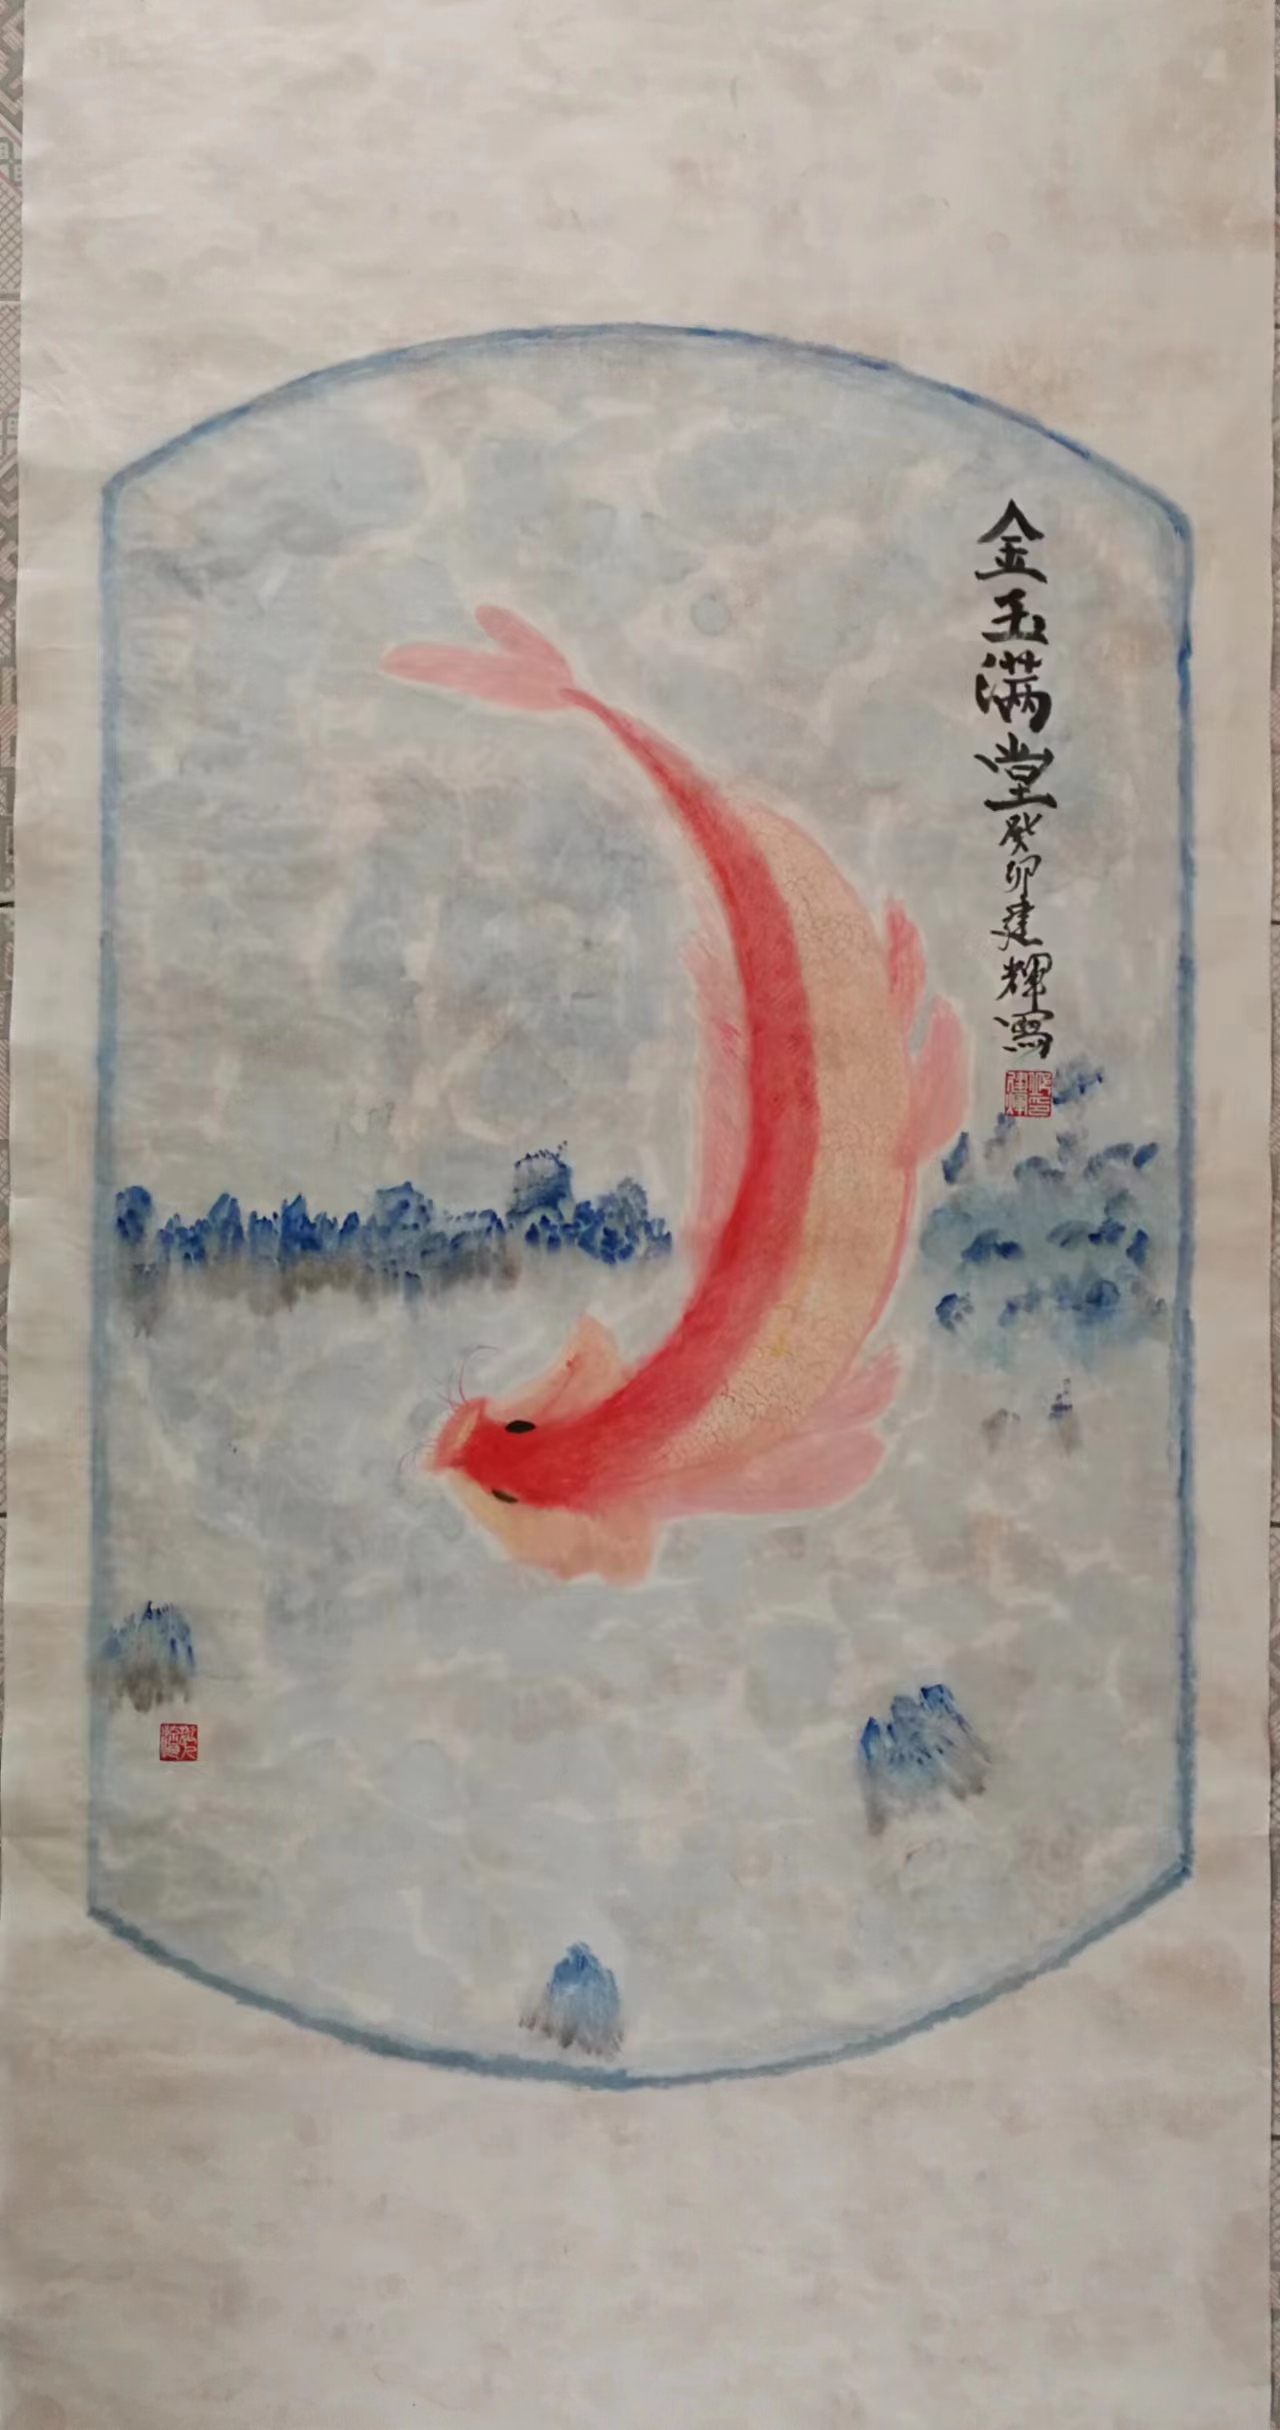 金玉满堂癸卯建輝寫